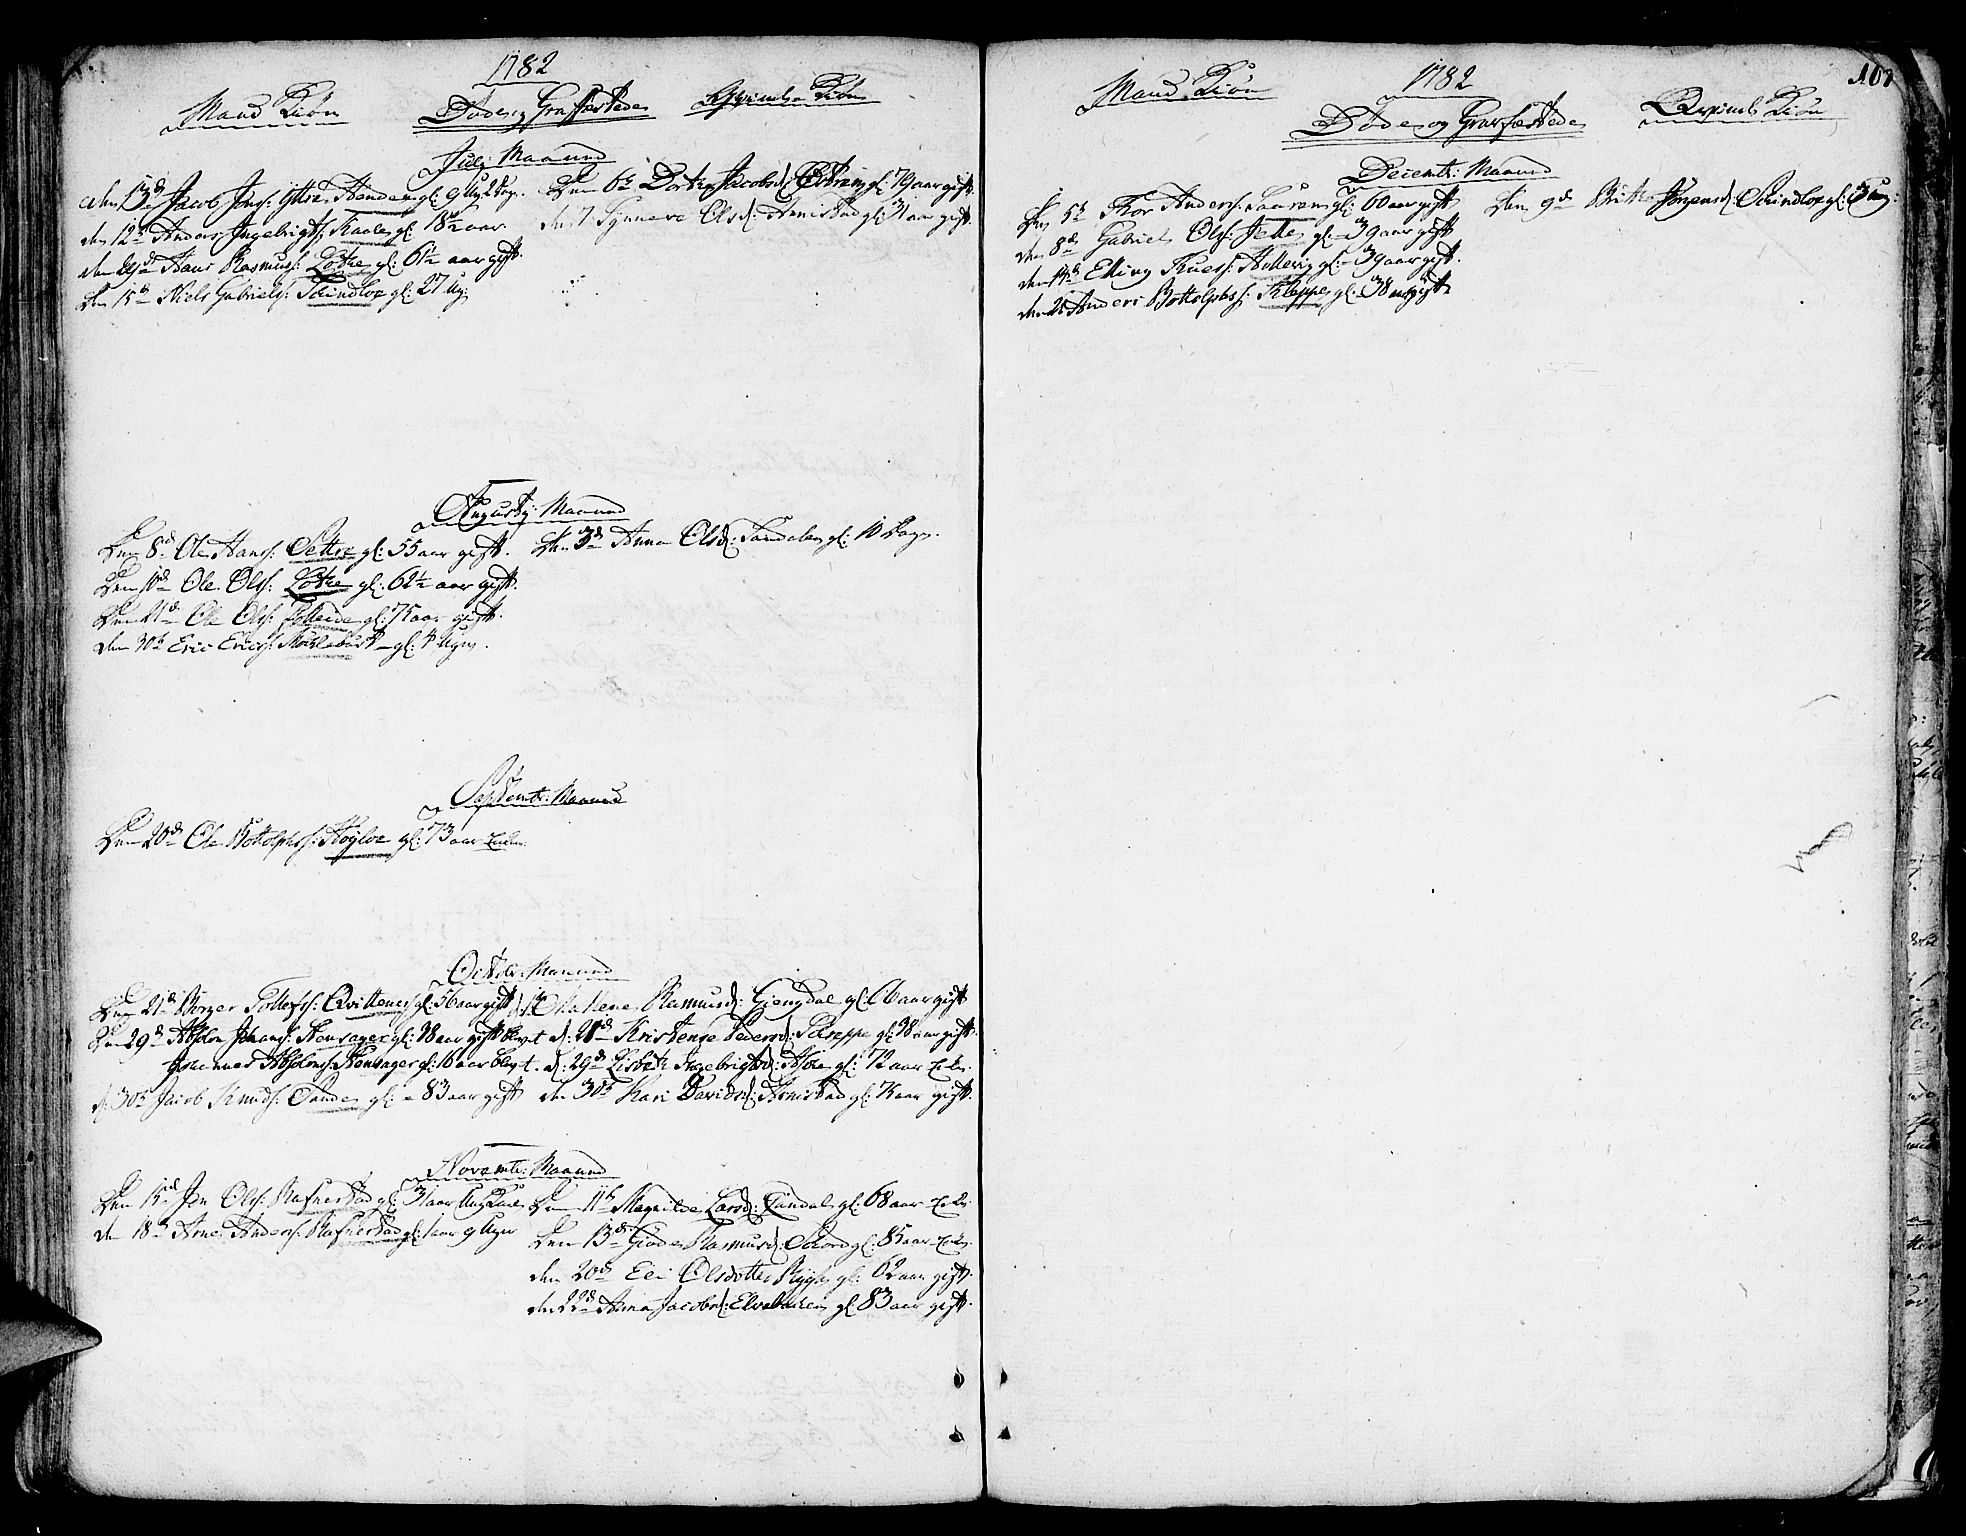 1782
Mand Kiön Döde og Graffæstede Qvinde Kiön
Julj Maaned
den 13de Jacob Jons: Ytter Henden gl: 9 Ug. 2 Dage.
den 12te Anders Ingebrigts: Kaale gl: 18½ aar.
den Hans Rasmuss: Lotre gl: 61½ aar gift.
den 15de Niels Gabriels: Skindloe gl: 27 Ug:
Den 6te Dorte Jacobsd: gl: 79 aar gift.
den 7 Synneve Olsd: Armestad gl: 31 aar gift.
Augusty Maaned
Den 8de Ole Hans: Settre gl: 55 aar gift.
Den 10de Ole Ols: Lotre gl: 62½ aar gift.
Den 21de Ole Ols: Tolleide gl: 75 aar gift.
den 30te Eric Erics: Mycklebust gl: 4 Uger.
Den 3de Anna Olsd: Sandalen gl: 10 Dage.
Septembr: Maaned
Den 20de Ole Bottolphss: Höyloe gl: 73 aar Enke
Octobr: Maaned
Den 21de Börger Tollefss: Qvittenes gl: 56 aar gift
Den 29de Absolon Johans: Hensager gl: 38 aar gift blevt
Johannes Absolons: Hensager gl: 16 aar blevt.
d: 30te Jacob Knuds: Sande gl: 83 aar gift
Malene Rasmusd: Giengdal gl: 66 aar gift
d: 28de Kristense Pedersd: Skreppe gl: 38 aar gift.
d: 29de Lisbeth Ingebrigtsd: Aasen gl: 72 aar Enke.
den 30te Kari Davidsd: Armestad gl: 75 aar gift.
Novembr: Maaned
Den 15de Jon Ols: Rafnestad gl: 31 aar Ung Karl
d: 18de Arne Anders: Rafnestad gl: 1 aar 9 Uger
Den 11te Magnilde Larsd: Sandal gl: 68 aar Enke
Den 13de Giöde Rasmusd: Skord gl: 85 aar Enke.
den 20de Eli Olsdotter Rygh gl: 62 aar gift.
den 22de Anna Jacobsd: Elvebakken gl: 83 aar gift.
107
1782
Mand Kiön Döde og Gravfæstede Qvinde Kiön
Decembr: Maaned
Den 5te Thor Anders: Sauren gl: 60 aar gift
den 8de Gabriel Ols: Jetle gl: 39 aar gift
den 14de Elling Knes: Hollevig gl: 39 aar gift.
den 21 Anders Bottolphs: Kleppe gl: 38 aar gift
Den 9de Britha Jörgensd: Skindloe gl: 3 ug: